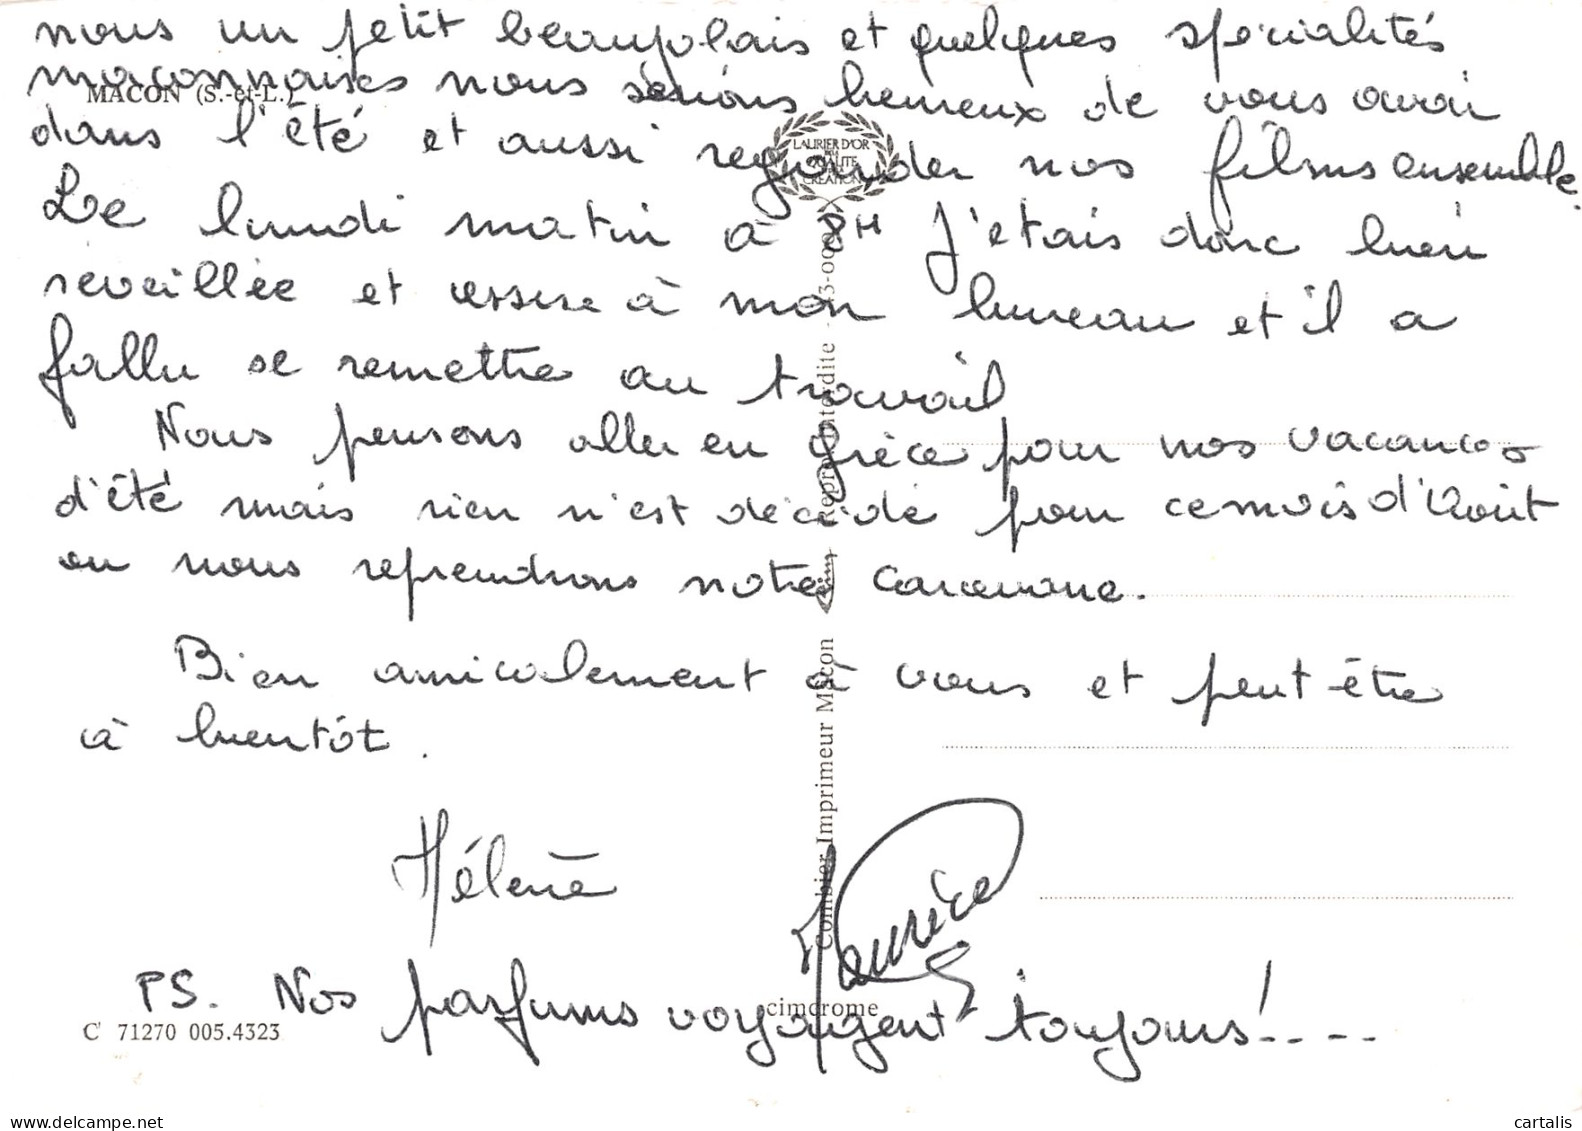 nous un petit beaujolais et quelques spécialités
maconnaises nous serions heureux de vous avoir
MACON (S.-et-L.)
dans l'été et aussi regarder nos films ensemble.
LAURIER D'OR
QUALITE
CREATION
Le lundi matin à 8H J'etais donc bien
reveillée et assise à mon bureau et il a
fallu se remettre au travail
Nous pensons aller en Grèce pour nos vacances
d'été mais rien n'est décidé pour ce mois d'Août
ou nous reprendrons notre caravane.
Bien amicalement à vous et peut être
à bientôt.
Hélène
Maurice
PS. Nos parfums voyagent toujours!....
C 71270 005.4323
cimcrome
Combier Imprimeur Mâcon Cim Repro. interdite